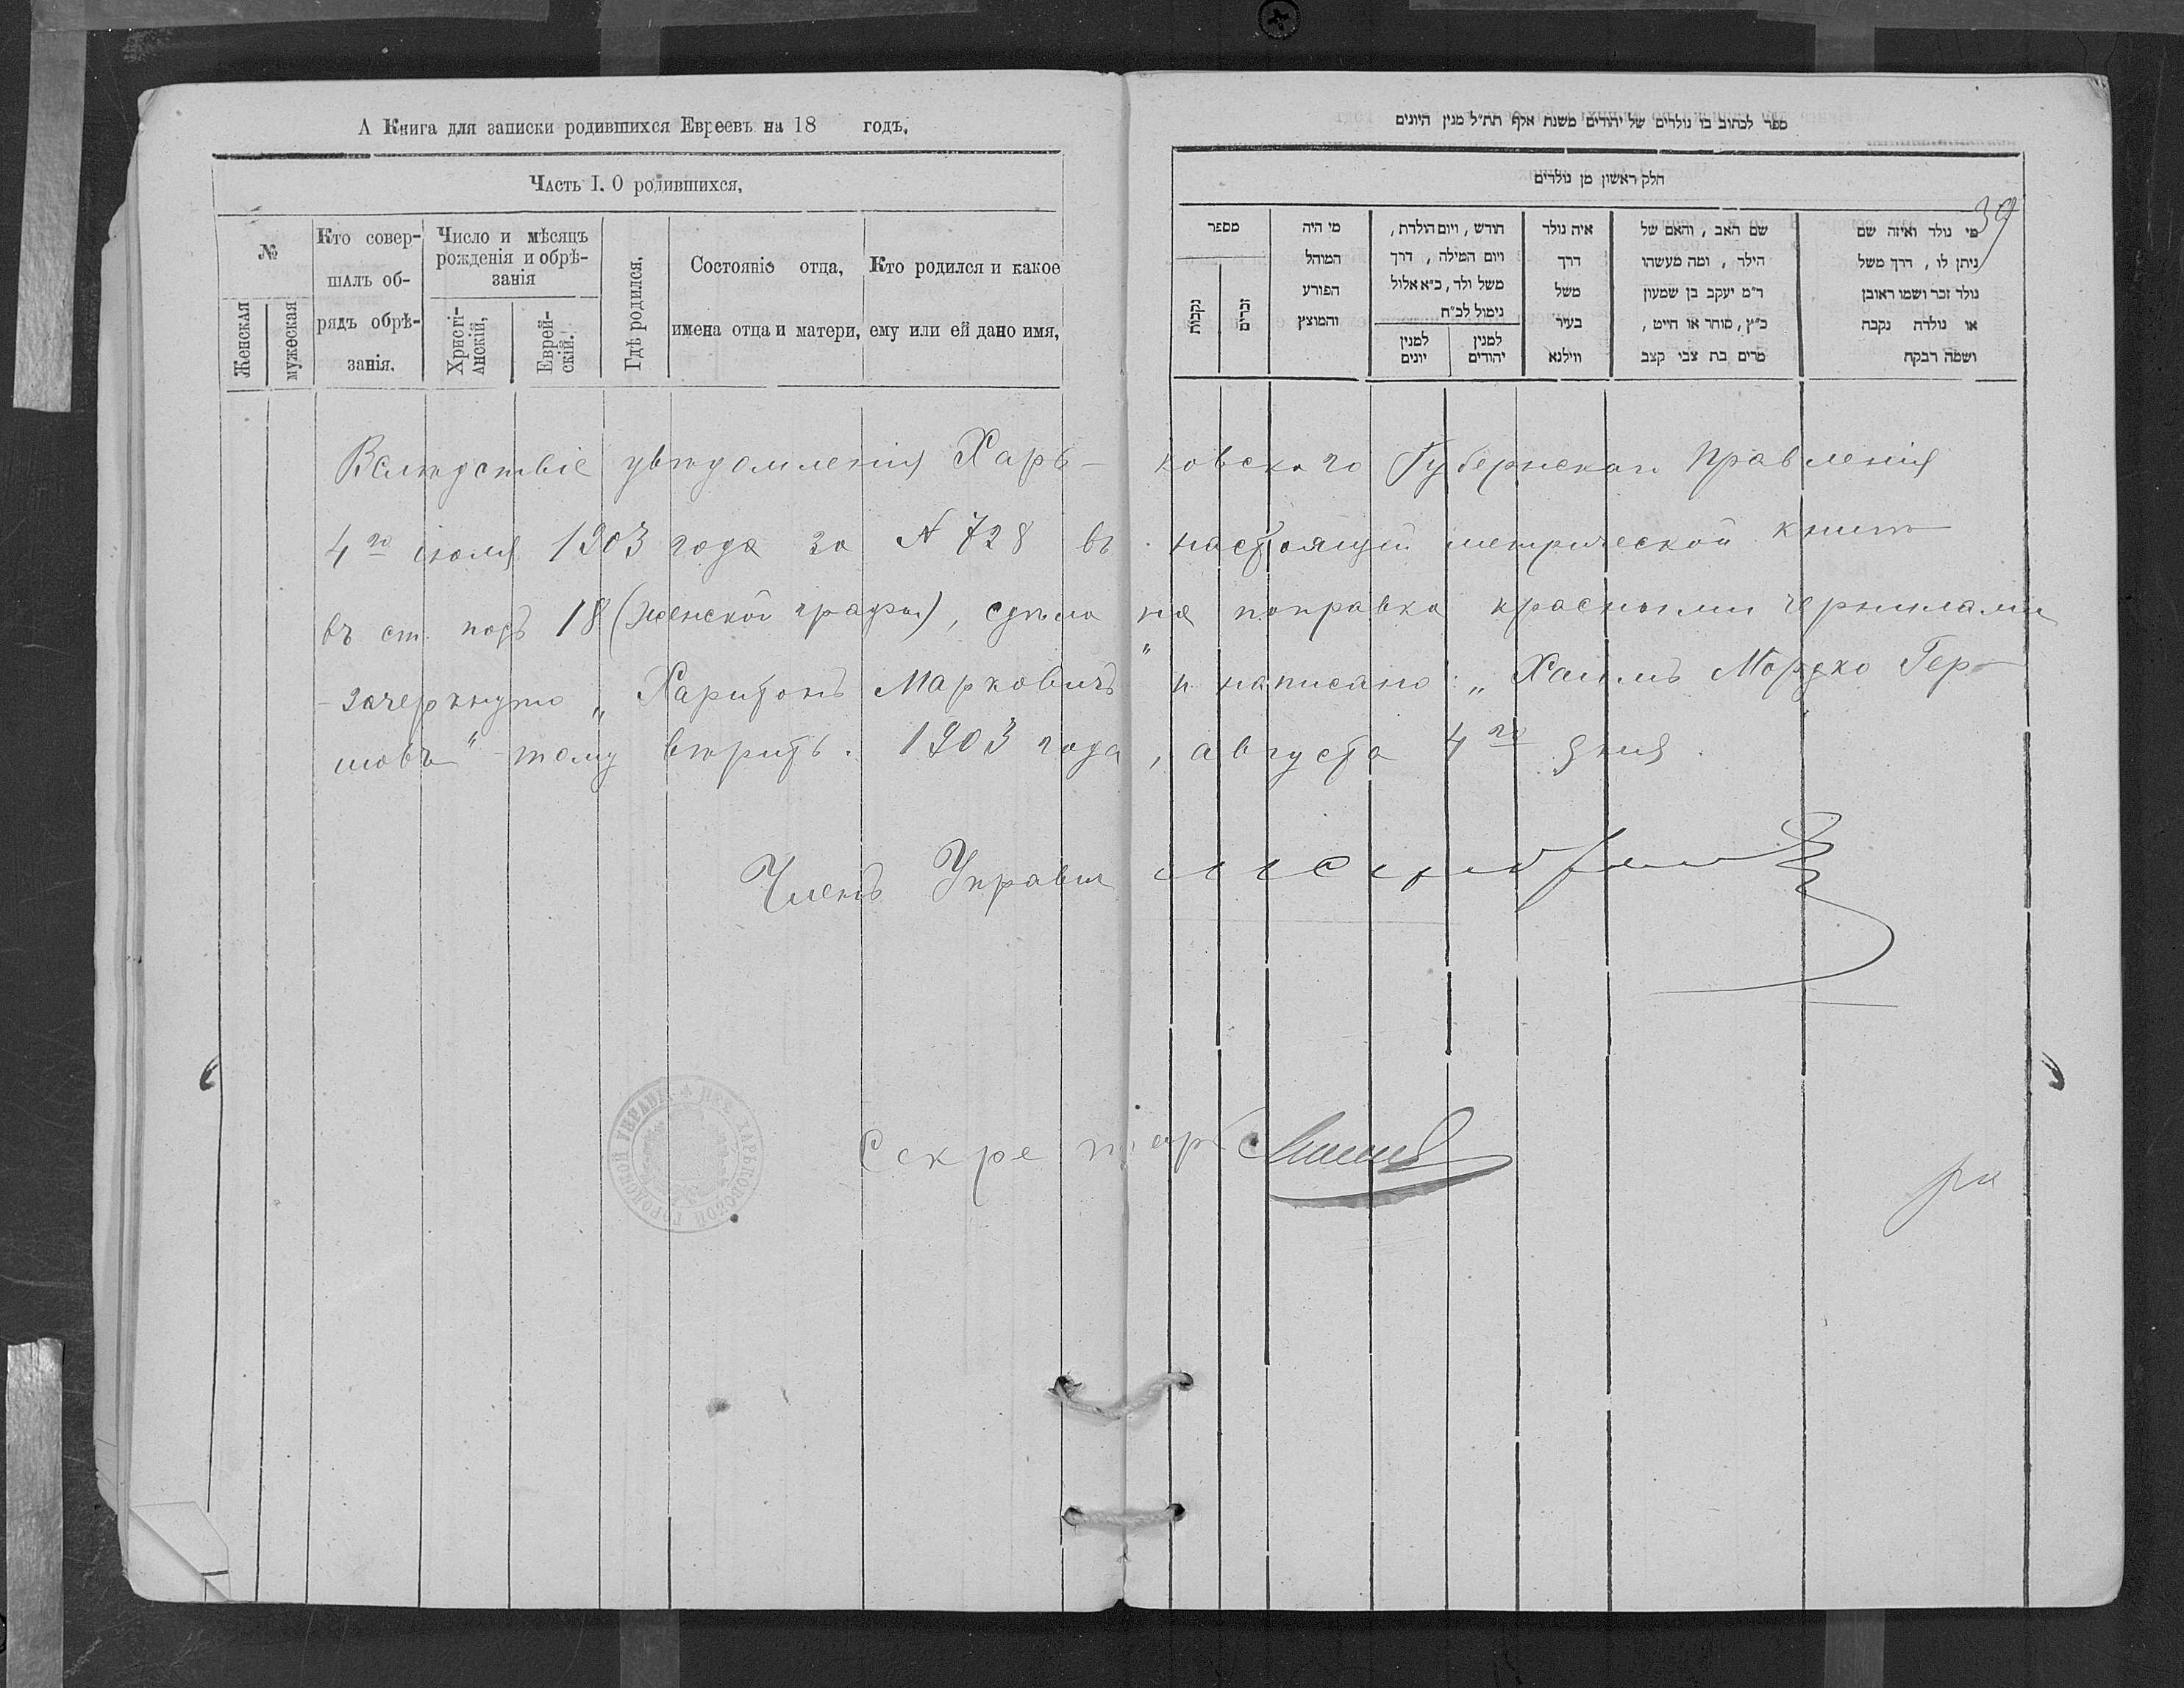 А Книга для записки родившихся Евреевъ на 18 годъ.
Часть I. О родившихся,
№
Женская
мужеская
Кто совер-
шалъ об-
рядъ обрѣ-
занія.
Число и мѣсяцъ
рожденія и обрѣ-
занія
Христі-
анскій,
Еврей-
скій.
Гдѣ родился.
Состояніе отца,
имена отца и матери,
Кто родился и какое
ему или ей дано имя,
ספר לכתוב בו נולדים של יהודים משנת אלף תת״ל מנין היונים
חלק ראשון מן נולדים
39
מספר
נקבות
זכרים
מי היה
המוהל
הפורע
והמוצץ
חודש , ויום הולדת ,
ויום המילה , דרך
משל ולד , כ״א אלול
נימול לכ״ח
למנין
יונים
למנין
יהודים
איה נולד
דרך
משל
בעיר
ווילנא
שם האב , והאם של
הילד , ומה מעשהו
ר״מ יעקב בן שמעון
כ״ץ , סוחר או חייט ,
מרים בת צבי קצב
מי נולד ואיזה שם
ניתן לו , דרך משל
נולד זכר ושמו ראובן
או נולדה נקבה
ושמה רבקה
Вслѣдствіе увѣдомленія Харь- ковскаго Губернскаго Правленія
4го іюля 1903 года за № 728 въ настоящей метрической книгѣ
въ ст. подъ 18 (женской графы), сдѣлана поправка красными чернилами
- зачеркнуто „Харитонъ Марковичъ" и написано: „Хаимъ Мордко Гер-
шовъ" - тому вѣрить. 1903 года, августа 4го дня.
Членъ Управы
Секретарь
ХАРЬКОВСКОЙ ГОРОДСКОЙ УПРАВЫ